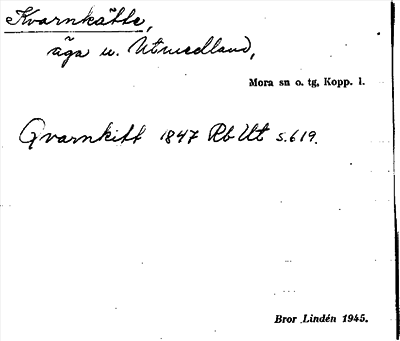 Kvarnkätte,
äga u. Utmedland,
Mora sn o. tg, Kopp. l.
Qvarnkitt 1847 Rb Ut s. 619.
Bror Lindén 1945.